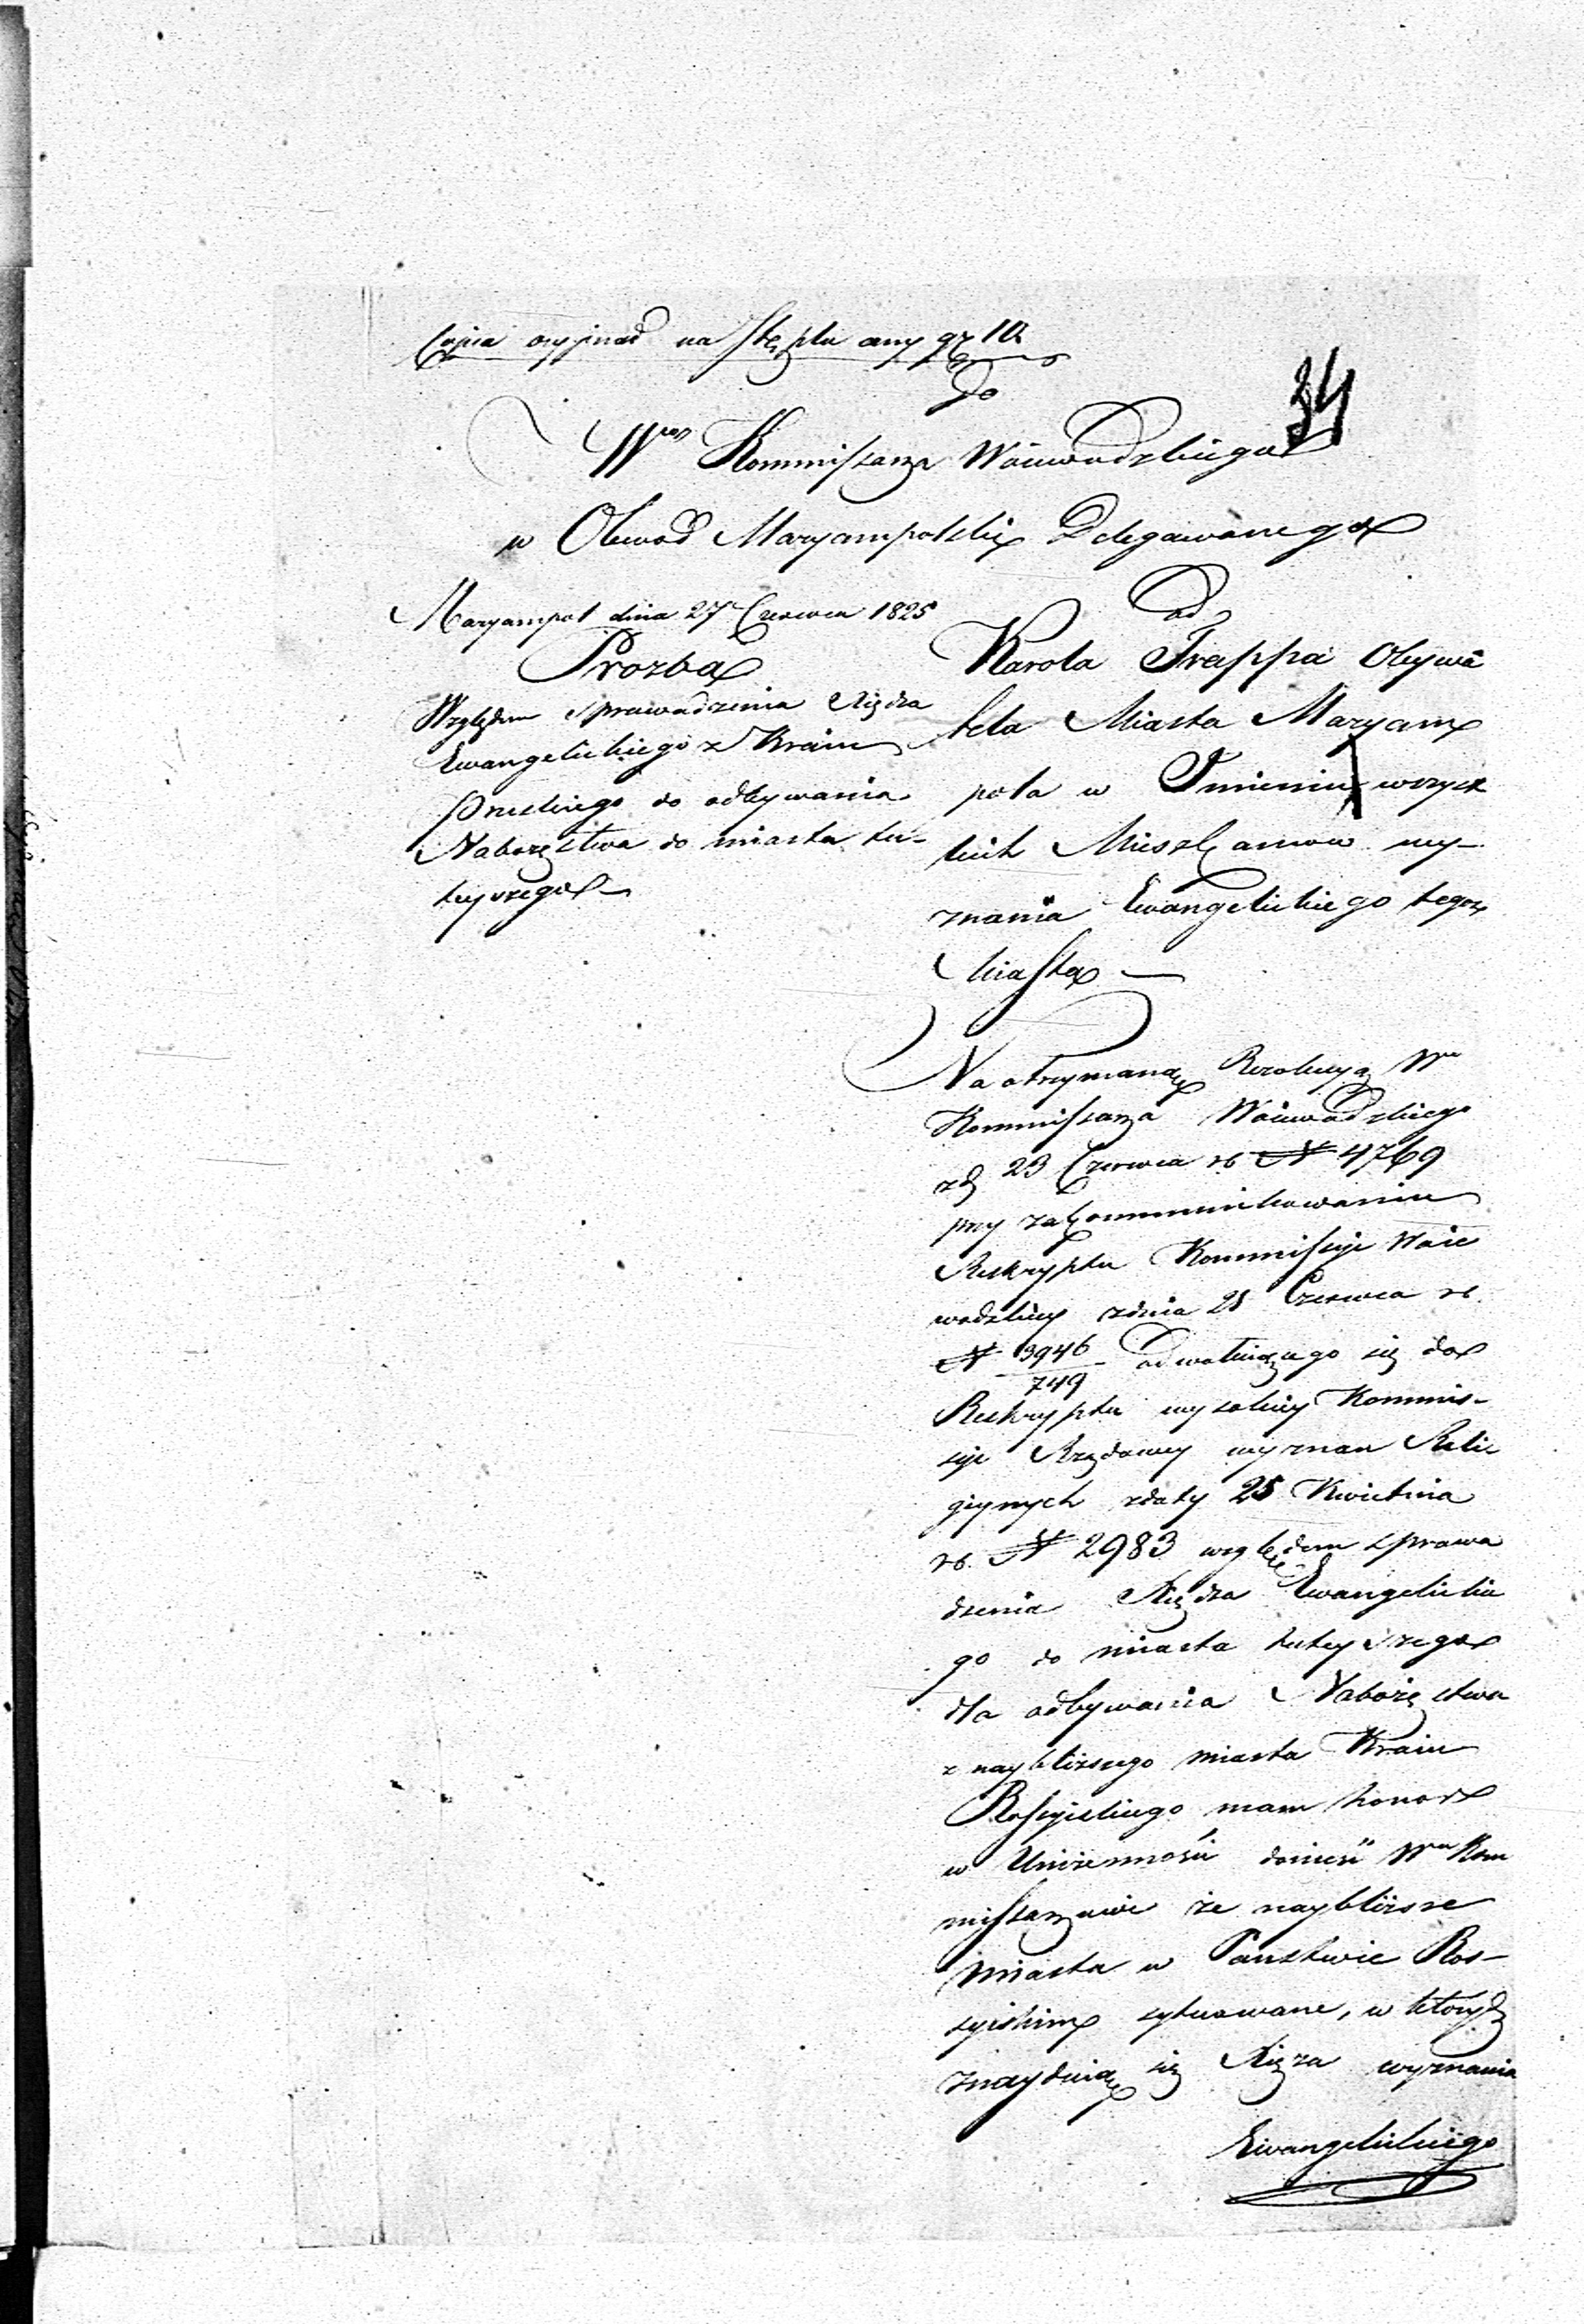 Copia oryginał na stęplu ceny gr 10
34
do
Wgo Kommissarza Woiewodzkiego
w Obwod Maryampolskim Delegowanego
Maryampol dnia 27 Czerwca 1825
Prozba
Względem sprowadzenia Xiędza
Ewangelickiego z Kraiu
Pruskiego do odbywania
Nabożęstwa do miasta tu-
teyszego
od
Karola Trappa Obywa
tela Miasta Maryam
pola w Imieniu wszyst
kich Mieszkancow wy-
znania Ewangelickiego tegoż
Miasta
Na otrzymaną Rezolucyą Wo
Kommissarza Woiewodzkiego
zd 23 Czerwca rb N 4769
przy zakommunikowaniu
Reskryptu Kommissyi Woie
wodzkiey zdnia 21 Czerwca rb
N 3946/749 odwołuiącego się do
Reskryptu wysokiey Kommis-
syi Rządowey wyznan Reli
giynych zdaty 25 Kwietnia
rb. N 2983 względem sprowa
dzenia Xiędza Ewangelickie
go do miasta tuteyszego
dla odbywania Nabożęstwa
z naybliższego miasta Kraiu
Rossyiskiego mam honor
w Uniżenności donieść Wu Kom
missarzowi że naybliższe
miasta w Państwie Ros-
syiskim sytuowane, w których
znayduią się Xięża wyznania
Ewangelickiego